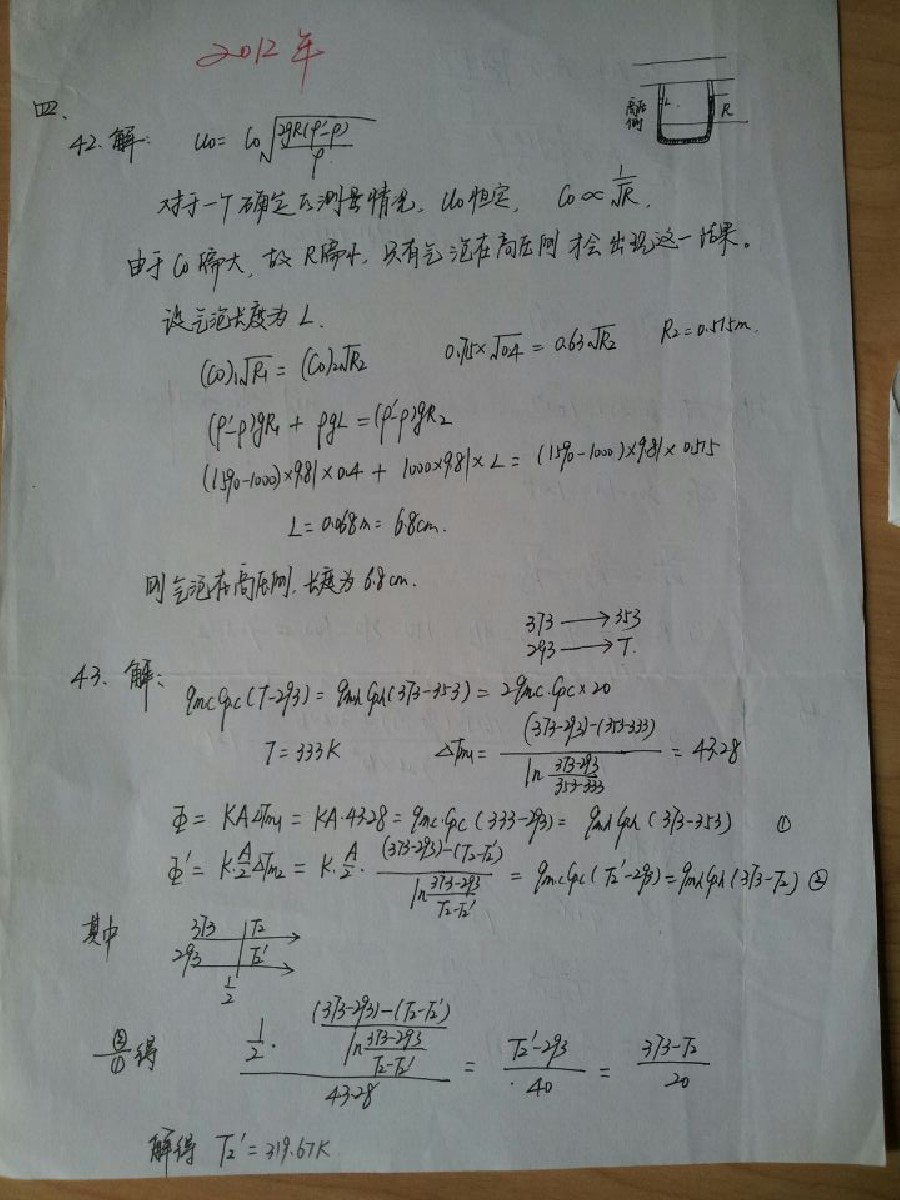 2012年
四、
高压侧 L R
42. 解: u₀ = C₀√(2gR(ρ'-ρ)/ρ)
对于一个确定的测量情况, u₀恒定, C₀ ∝ 1/√R.
由于C₀偏大, 故R偏小, 只有气泡在高压侧才会出现这一结果。
设气泡长度为L.
(C₀)₁√R₁ = (C₀)₂√R₂ 0.75×√0.4 = 0.63√R₂ R₂=0.575m.
(ρ'-ρ)gR₁ + ρgL = (ρ'-ρ)gR₂
(1590-1000)×9.81×0.4 + 1000×9.81×L = (1590-1000)×9.81×0.575
L = 0.068m = 6.8cm.
则气泡在高压侧, 长度为6.8cm.
373 → 353
293 → T.
43. 解:
qmcCpc(T-293) = qmhCph(373-353) = 2qmc·Cpc×20
T = 333K ΔTm₁ = ((373-293)-(353-333))/(ln (373-293)/(353-333)) = 43.28
Φ = KAΔTm₁ = KA·43.28 = qmc·Cpc(333-293) = qmhCph(373-353) ①
Φ' = K·A/2·ΔTm₂ = K·A/2·((373-293)-(T₂-T₂'))/(ln (373-293)/(T₂-T₂')) = qmcCpc(T₂'-293) = qmhCph(373-T₂) ②
其中
373 T₂
293 T₂'
L/2
②/① 得 (1/2·((373-293)-(T₂-T₂'))/(ln (373-293)/(T₂-T₂')))/43.28 = (T₂'-293)/40 = (373-T₂)/20
解得 T₂' = 319.67K